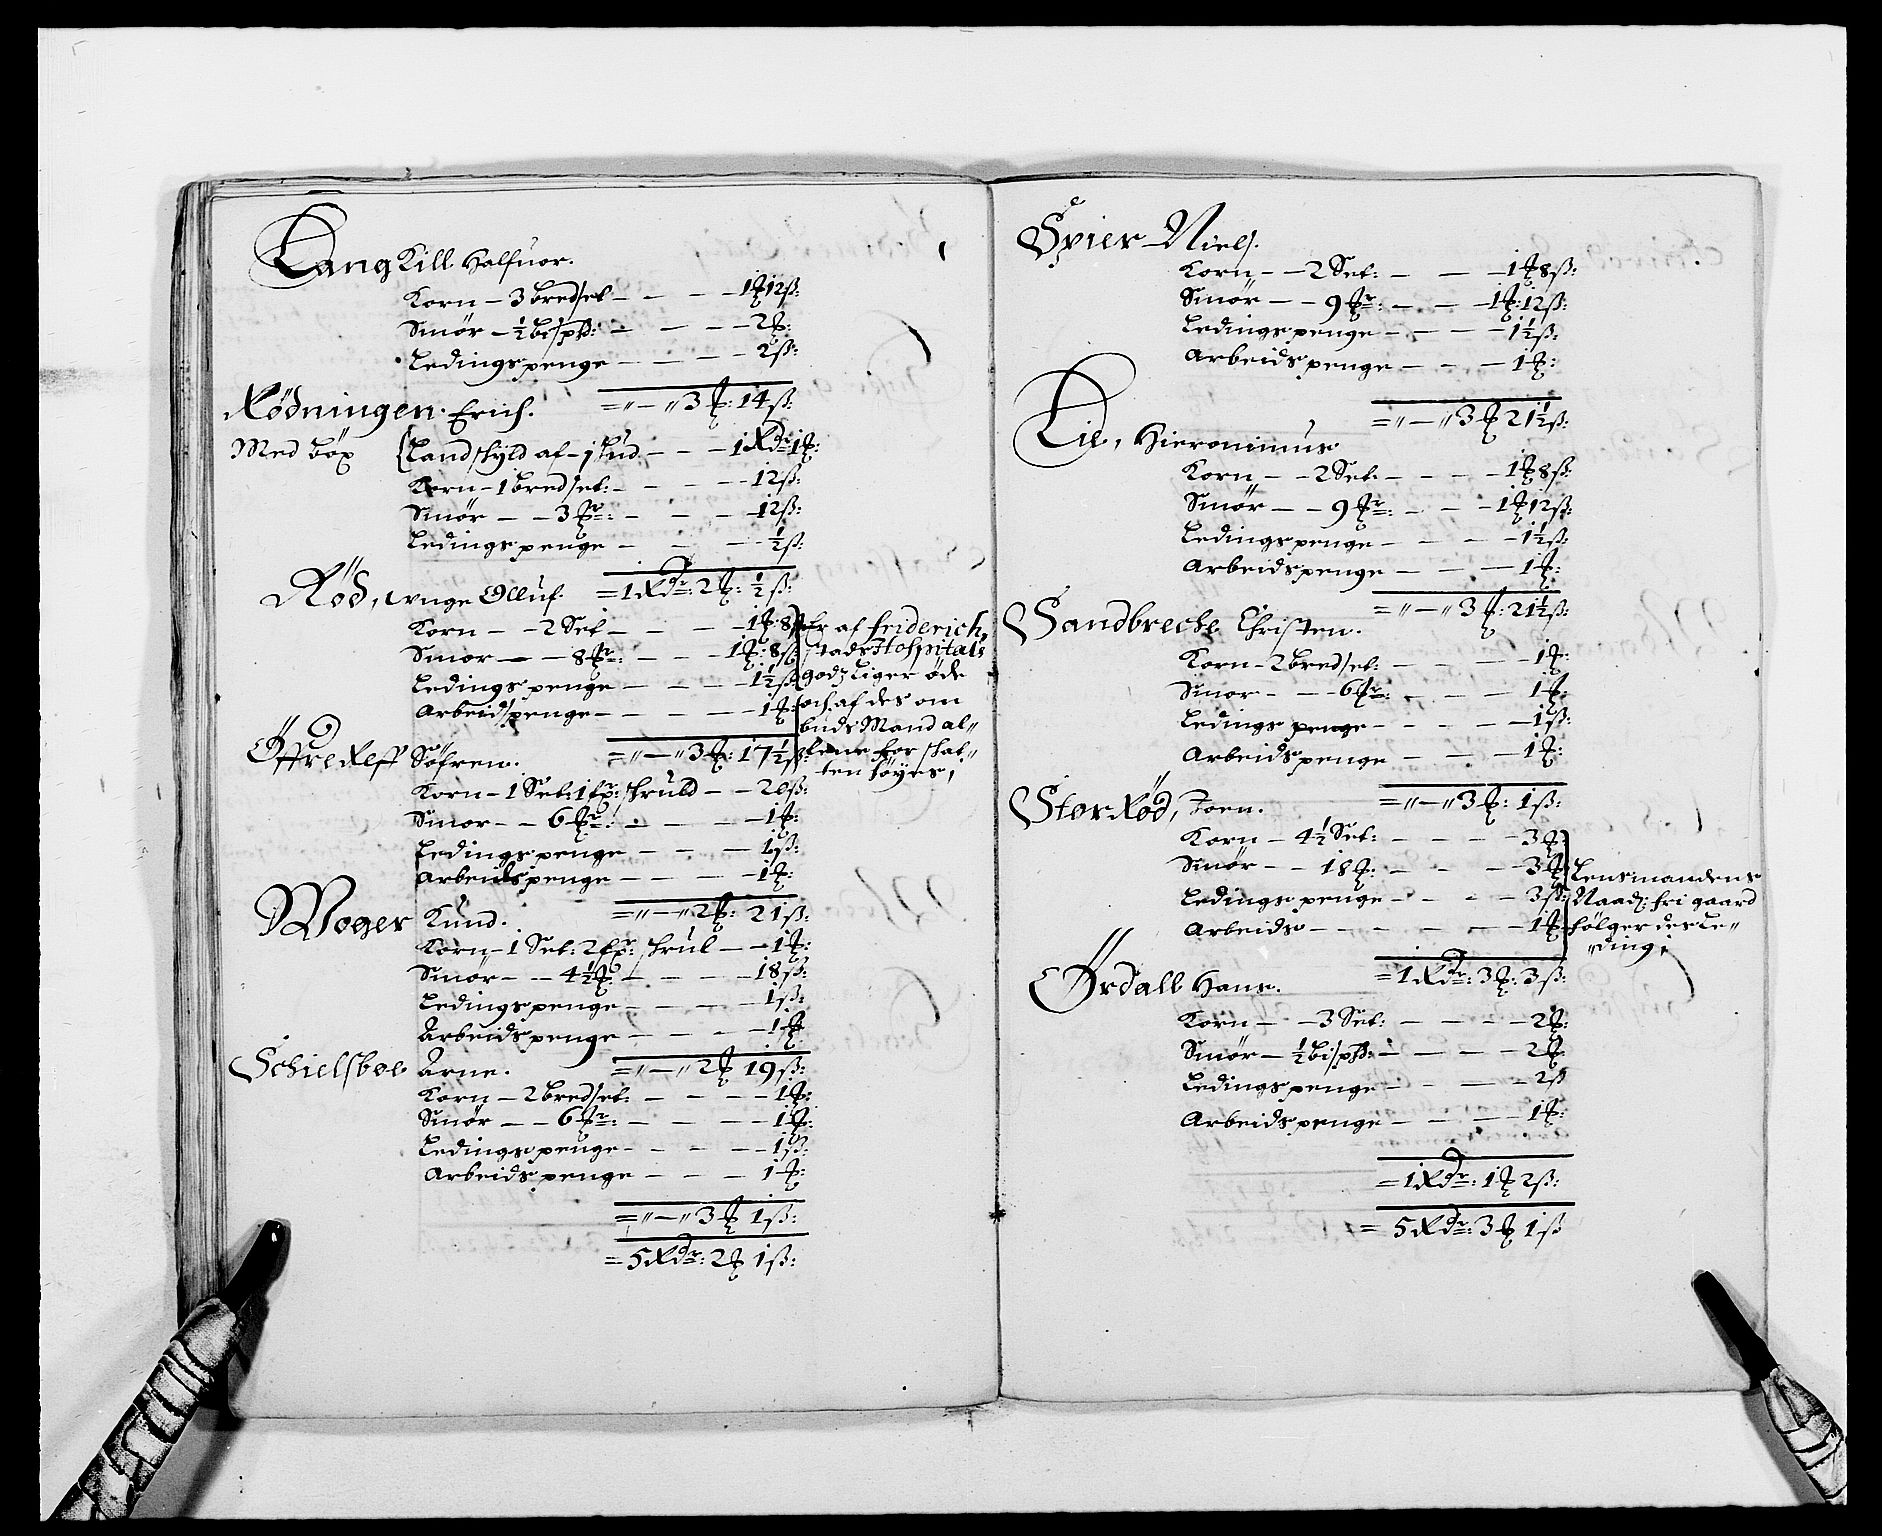 Langkill Halfuor.
Korn – 3 bredset – – – – 1 ℔ 12 ß:
Smør – ½ bispd: – – – – 2 ℔:
Ledingspenge – – – – 2 ß:
= " – " 3 ℔: 14 ß:
Rødningen. Erich.
Med Böx {Landskyld af – 1 hud – – – 1 Rdr: 1 ℔:
Korn – 1 bredset: – – – – 12 ß:
Smør – – 3 ℔r: – – – – 12 ß:
Ledingspenge – – – – ½ ß:
= 1 Rdr: 2 ℔: ½ ß:
Rød, unge Olluf.
Korn – – 2 Set – – – – 1 ℔: 8 ß
Smør – – 8 ℔r: – – – 1 ℔: 8 ß
Ledingspenge – – – – 1½ ß:
Arbeidspenge – – – – 1 ℔:
Er af friderich,
stads Hospitals
godz Liger øde
och af des om
buds Mand al=
lene for skat=
ten søyes;
= " – " 3 ℔: 17½ ß:
Söfren.
Korn – 1 Set: 1 fr: skruld – – 20 ß:
Smør – – 6 ℔r: – – – – 1 ℔:
Ledingspenge – – – – 1 ß:
Arbeidspenge – – – – 1 ℔:
= " – " 2 ℔: 21 ß:
Woger Kund.
Korn – 1 Set: 2 fr: – – 1 ℔:
Smør – – 4½ ℔ – – – – 18 ß:
Ledingspenge – – – – 1 ß:
Arbeidspenge – – – – 1 ℔
= " – " 2 ℔ 19 ß:
Schielsboe Arne.
Korn – 2 bredset: – – – – 1 ℔:
Smør – – 6 ℔r: – – – – 1 ℔:
Ledingspenge – – – – 1 ß:
Arbeidspenge – – – 1 ℔:
= " – " 3 ℔ 1 ß:
= 5 Rdr: 2 ℔ 1 ß:
Spier Niels.
Korn – – 2 Set: – – – 1 ℔ 8 ß:
Smør – – 9 ℔r: – – – 1 ℔: 12 ß:
Ledingspenge – – – – 1½ ß:
Arbeidspenge – – – 1 ℔:
= " – " 3 ℔ 21½ ß:
Lie, Hieronimus
Korn – – 2 Set – – – – 1 ℔ 8 ß:
Smør – – 9 ℔r: – – – 1 ℔ 12 ß:
Ledingspenge – – – – 1½ ß:
Arbeidspenge – – – 1 ℔:
= " – " 3 ℔: 21½ ß:
Sandbreche Christen.
Korn – 2 bredset: – – – – 1 ℔:
Smør – – – 6 ℔r: – – – 1 ℔:
Ledingspenge – – – – 1 ß:
Arbeidspenge – – – 1 ℔:
= " – " 3 ℔: 1 ß:
Stor Rød, Joen.
Korn – 4½ Set: – – – – 3 ℔:
Smør – – 18 ℔: – – – – 3 ℔
Ledingspenge – – – – 3 ß:
Arbeids – – – – – – 1 ℔
Lensmandens
Naadz: fri gaard
følger des Le=
=ding;
= 1 Rdr: 3 ℔: 3 ß:
Ørdall Hans.
Korn – – 3 Set: – – – – 2 ℔:
Smør – ½ bispd: – – – – 2 ℔:
Ledingspenge – – – – 2 ß
Arbeidspenge – – – – 1 ℔:
= 1 Rdr: 1 ℔ 2 ß:
= 5 Rdr: 3 ℔ 1 ß